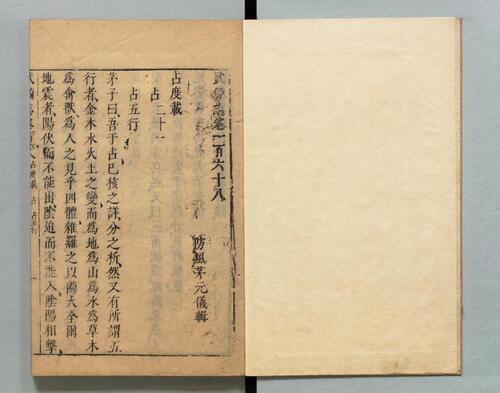 武備志卷一百六十八
防風茅元儀輯
占度載
占二十一
占五行
茅子曰吾于占已核之詳分之析然又有所謂五
行者金木水火土之變而為地為山為水為草木
為禽獸為人之見乎四體雜羅之以備大全爾
地震者陽伏而不能出陰迫而不能入陰陽相擊
武備志卷百六八 占度載 占 占五行 一